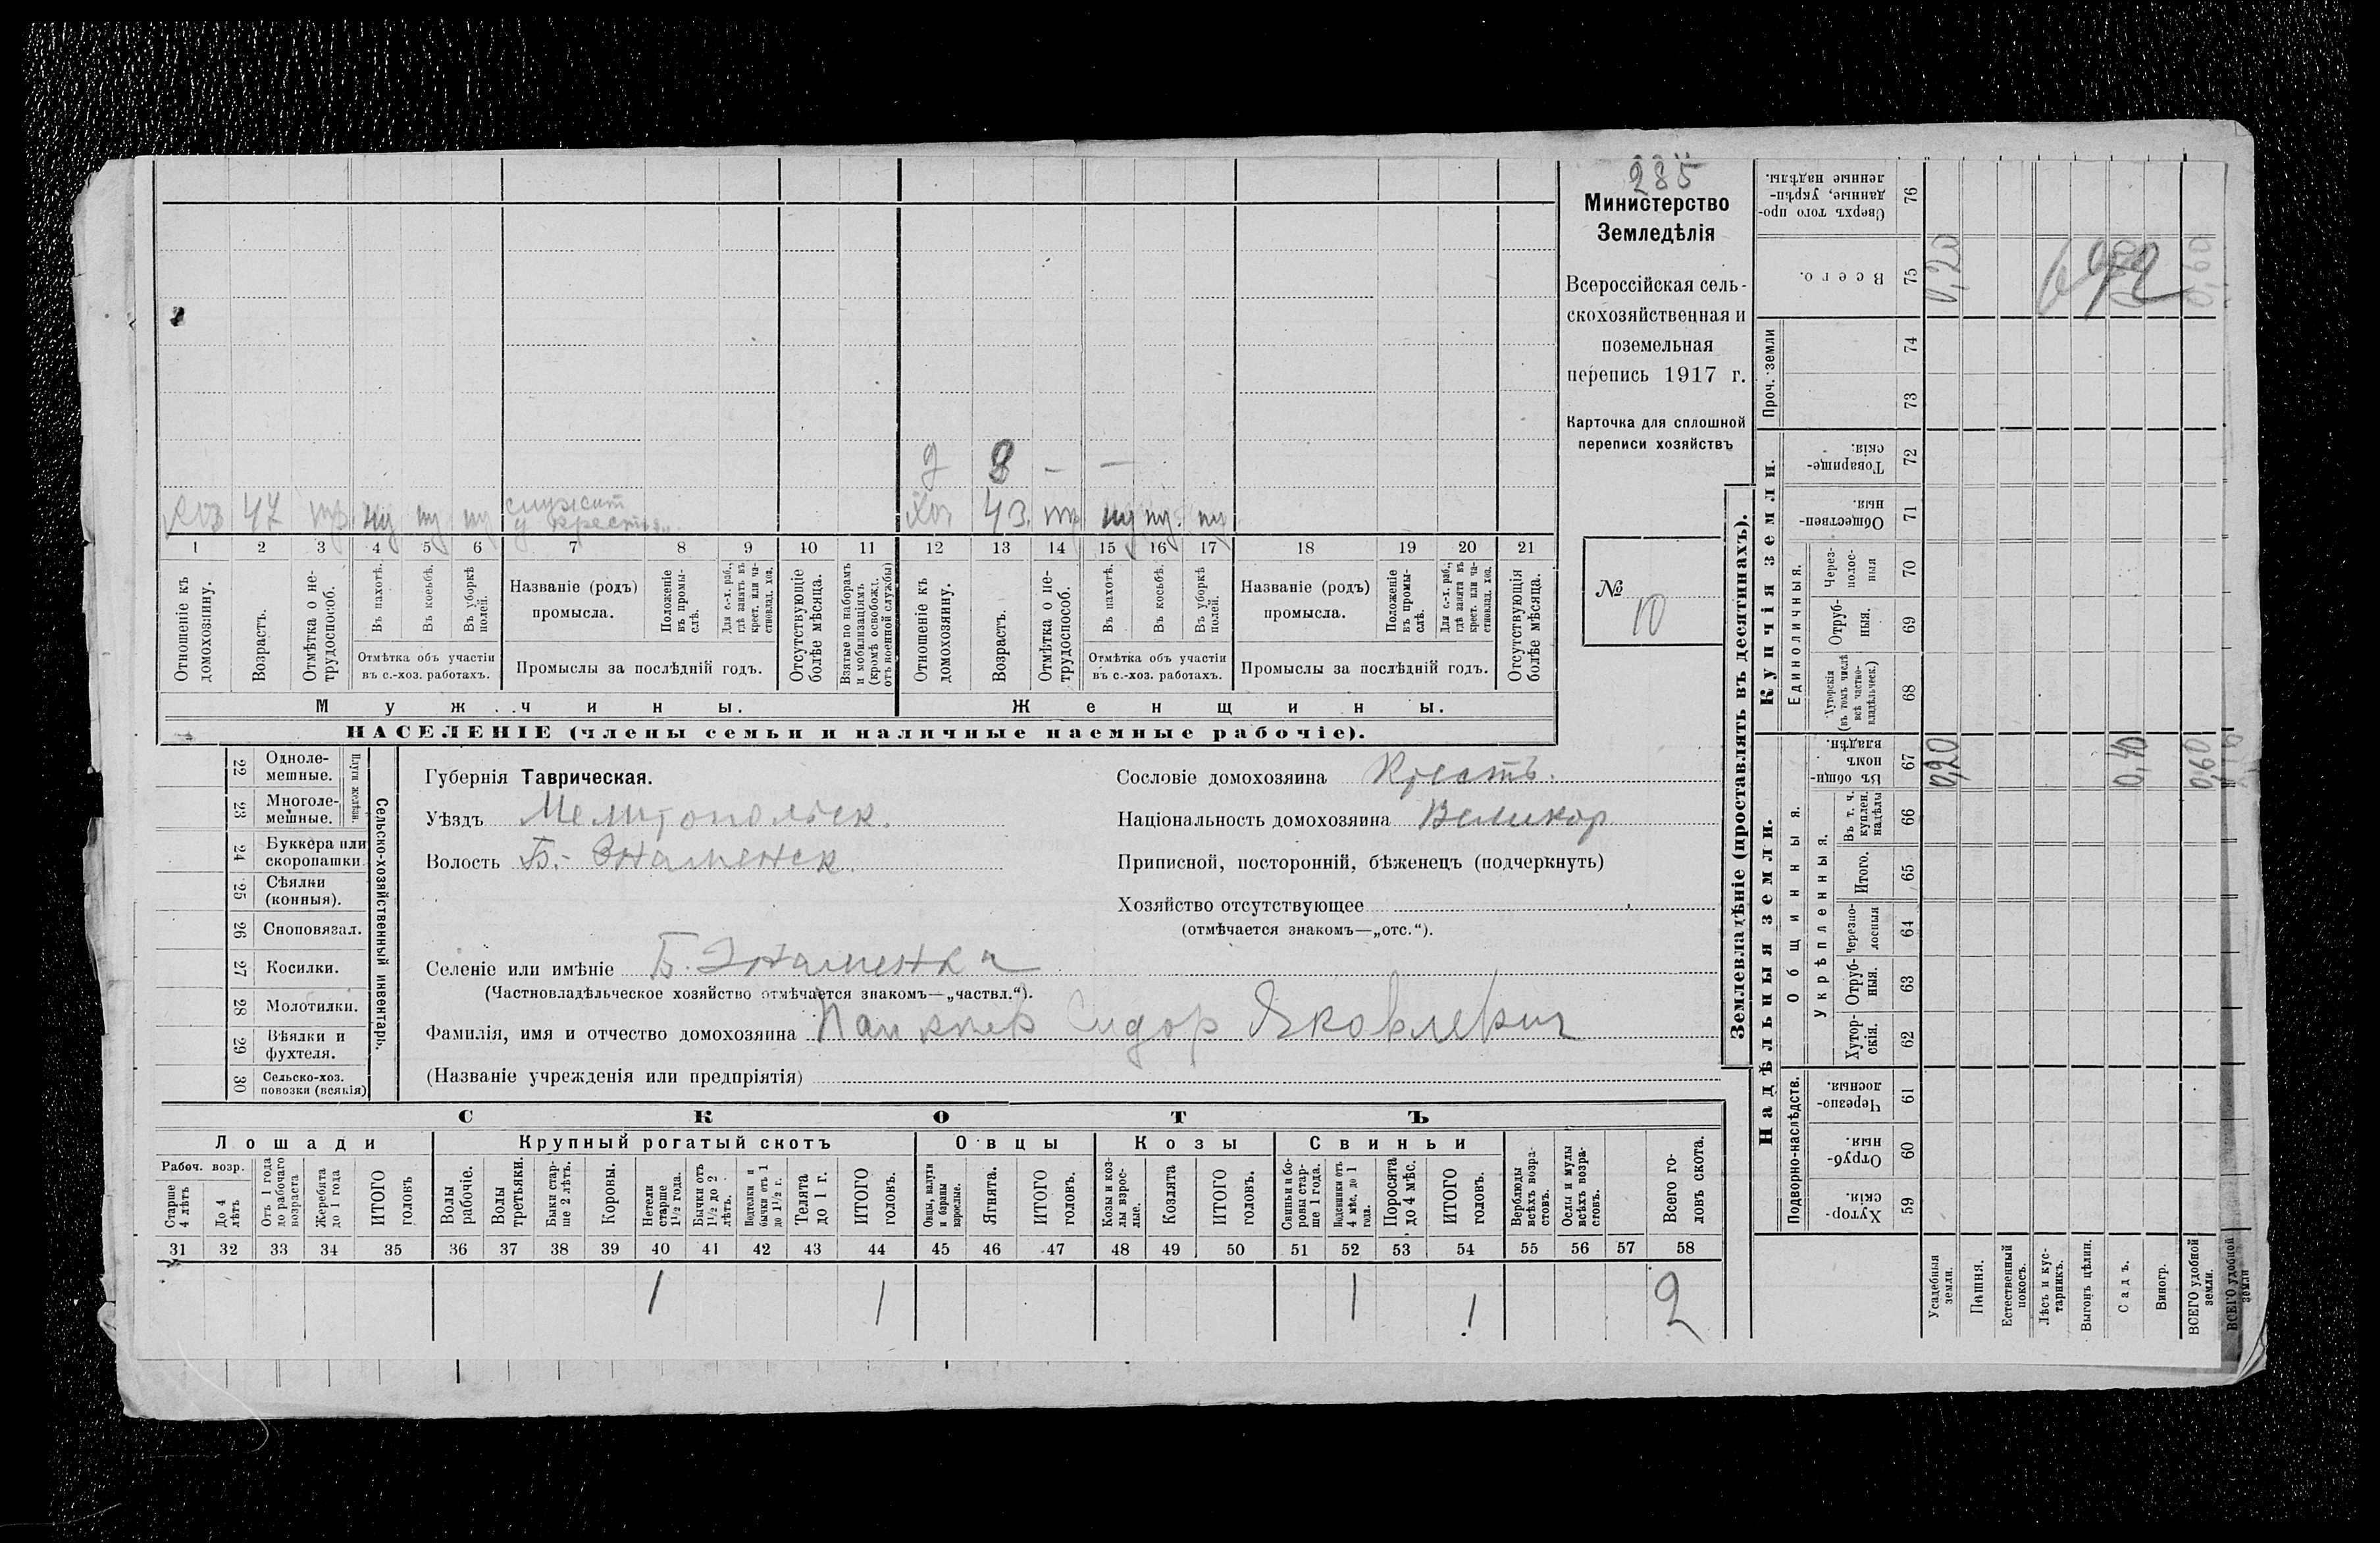 285
Министерство
Земледѣлія
Всероссійская сель-
скохозяйственная и
поземельная
перепись 1917 г.
Карточка для сплошной
переписи хозяйствъ
№
10
д 8 — —
хоз 47 тр. пу пу пу служит
у крестьян.
хоз 43. тр пу пу. пу
1 2 3 4 5 6 7 8 9 10 11 12 13 14 15 16 17 18 19 20 21
Отношеніе къ домохозяину.
Возрастъ.
Отмѣтка о не-
трудоспособ.
Въ пахотѣ.
Въ косьбѣ.
Въ уборкѣ полей.
Отмѣтка объ участіи
въ с.-хоз. работахъ.
Названіе (родъ)
промысла.
Положеніе въ промы-
слѣ.
Для с.-х. раб., гдѣ занятъ въ крест. или ча-
стновлад. хоз.
Промыслы за послѣдній годъ.
Отсутствующіе болѣе мѣсяца.
Взятые по наборамъ и мобилизаціямъ (кромѣ освобожд. отъ военной службы)
Отношеніе къ домохозяину.
Возрастъ.
Отмѣтка о не-
трудоспособ.
Въ пахотѣ.
Въ косьбѣ.
Въ уборкѣ полей.
Отмѣтка объ участіи
въ с.-хоз. работахъ.
Названіе (родъ)
промысла.
Положеніе въ промы-
слѣ.
Для с.-х. раб., гдѣ занята въ крест. или ча-
стновлад. хоз.
Промыслы за послѣдній годъ.
Отсутствующія болѣе мѣсяца.
Мужчины.
Женщины.
НАСЕЛЕНІЕ (члены семьи и наличные наемные рабочіе).
Сельско-хозяйственный инвентарь.
Плуги желѣзн.
22 Одноле-
мешные.
23 Многоле-
мешные.
24 Буккера или
скоропашки
25 Сѣялки
(конныя).
26 Сноповязал.
27 Косилки.
28 Молотилки.
29 Вѣялки и
фухтеля.
30 Сельско-хоз.
повозки (всякія)
Губернія Таврическая.
Уѣздъ Мелитопольск.
Волость Б.-Знаменск.
Селеніе или имѣніе Б. Знаменка
(Частновладѣльческое хозяйство отмѣчается знакомъ—„частвл.“).
Фамилія, имя и отчество домохозяина Сидор Яковлевич
(Названіе учрежденія или предпріятія)
Сословіе домохозяина Крестъ.
Національность домохозяина Великор
Приписной, посторонній, бѣженецъ (подчеркнуть)
Хозяйство отсутствующее
(отмѣчается знакомъ—„отс.“).
СКОТЪ
Лошади
Крупный рогатый скотъ
Овцы
Козы
Свиньи
Рабоч. возр.
Старше 4 лѣтъ
До 4 лѣтъ
Отъ 1 года до рабочаго возраста
Жеребята до 1 года
ИТОГО головъ
Волы рабочіе.
Волы третьяки.
Быки стар-
ше 2 лѣтъ.
Коровы.
Нетели старше 1½ года.
Бычки отъ 1½ до 2 лѣтъ.
Подтелки и бычки отъ 1 до 1½ г.
Телята до 1 г.
ИТОГО головъ.
Овцы, валухи и бараны взрослые.
Ягнята.
ИТОГО головъ.
Козы и коз-
лы взрос-
лые.
Козлята
ИТОГО головъ.
Свиньи и бо-
ровы стар-
ше 1 года.
Подсвинки отъ 4 мѣс. до 1 года.
Поросята до 4 мѣс.
ИТОГО головъ.
Верблюды всѣхъ возра-
стовъ.
Ослы и мулы всѣхъ возра-
стовъ.
Всего го-
ловъ скота.
31 32 33 34 35 36 37 38 39 40 41 42 43 44 45 46 47 48 49 50 51 52 53 54 55 56 57 58
1 1 1 1 2
Землевладѣніе (проставлять въ десятинахъ).
Надѣльныя земли.
Купчія земли.
Проч. земли
Подворно-наслѣдств.
Общинныя.
Укрѣпленныя.
Единоличныя.
Сверхъ того про-
данные, укрѣп-
ленные надѣлы. 76
Всего. 75
74
73
Товарище-
скія. 72
Обществен-
ныя. 71
Через-
полос-
ныя 70
Отруб-
ныя. 69
Хуторскія (въ томъ числѣ всѣ частно-
владѣльческ.) 68
Въ общи-
номъ
владѣн. 67
Въ т. ч. куплен. надѣлы 66
Итого. 65
Черезпо-
лосныя 64
Отруб-
ныя. 63
Хутор-
скія. 62
Черезпо-
лосныя. 61
Отруб-
ныя. 60
Хутор-
скія. 59
0,20
0,60
0,20
0,40
0,60
Усадебныя земли.
Пашня.
Естественный покосъ.
Лѣсъ и кус-
тарникъ.
Выгонъ цѣлин.
Садъ.
Виногр.
ВСЕГО удобной земли.
ВСЕГО удобной земли